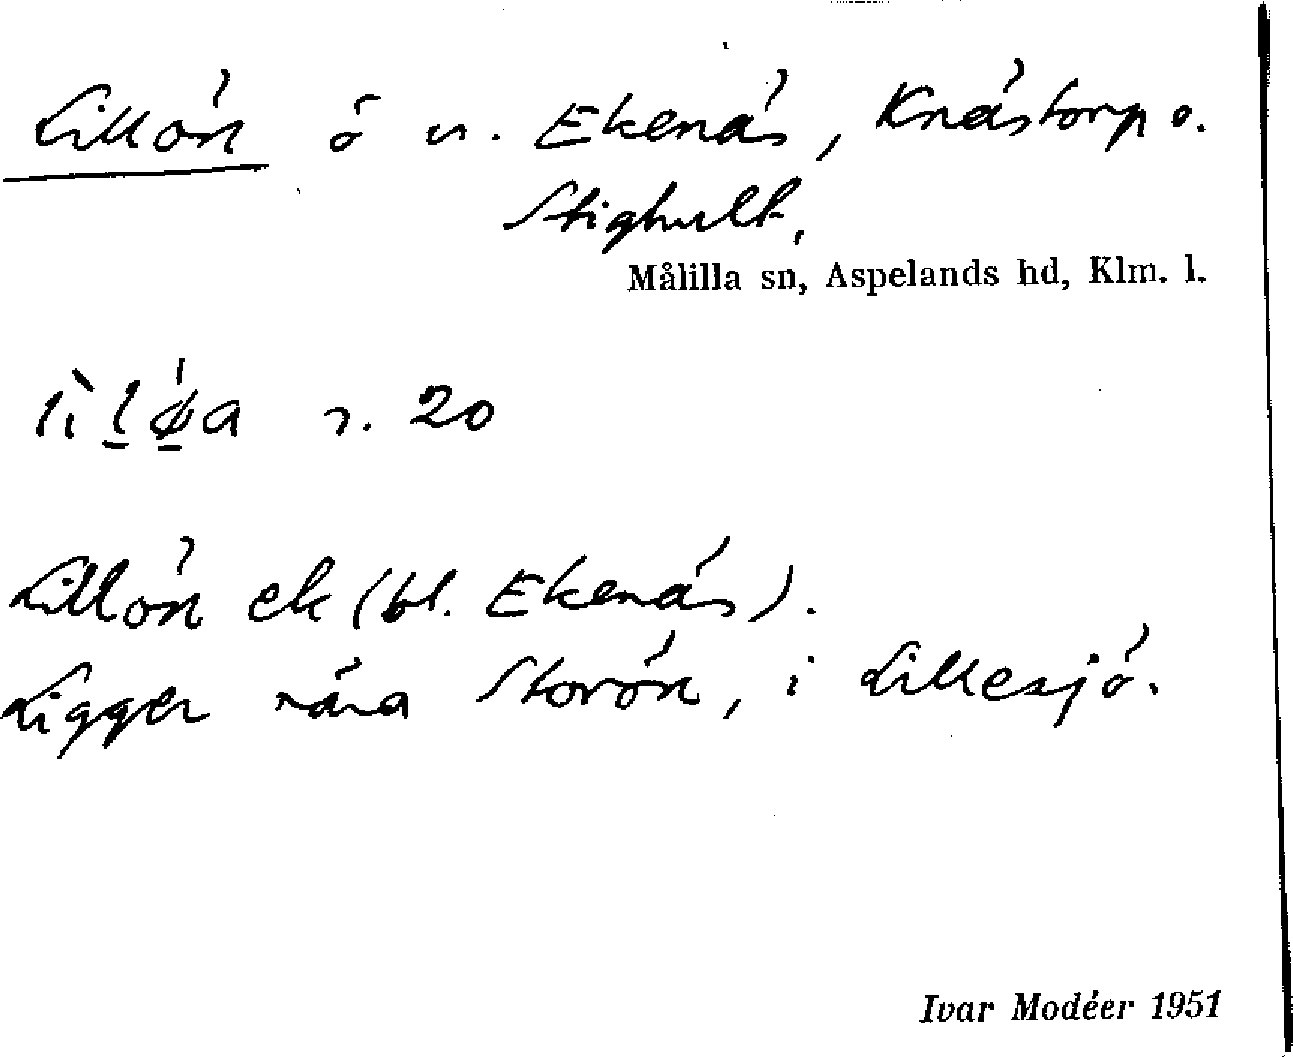 Lillön ö u. Ekenäs, Knästorp o.
Stighult,
Målilla sn, Aspelands hd, Klm. l.
r. 20
Lillön ek (bl. Ekenäs).
Ligger nära Storön, i Lillesjö.
Ivar Modéer 1951